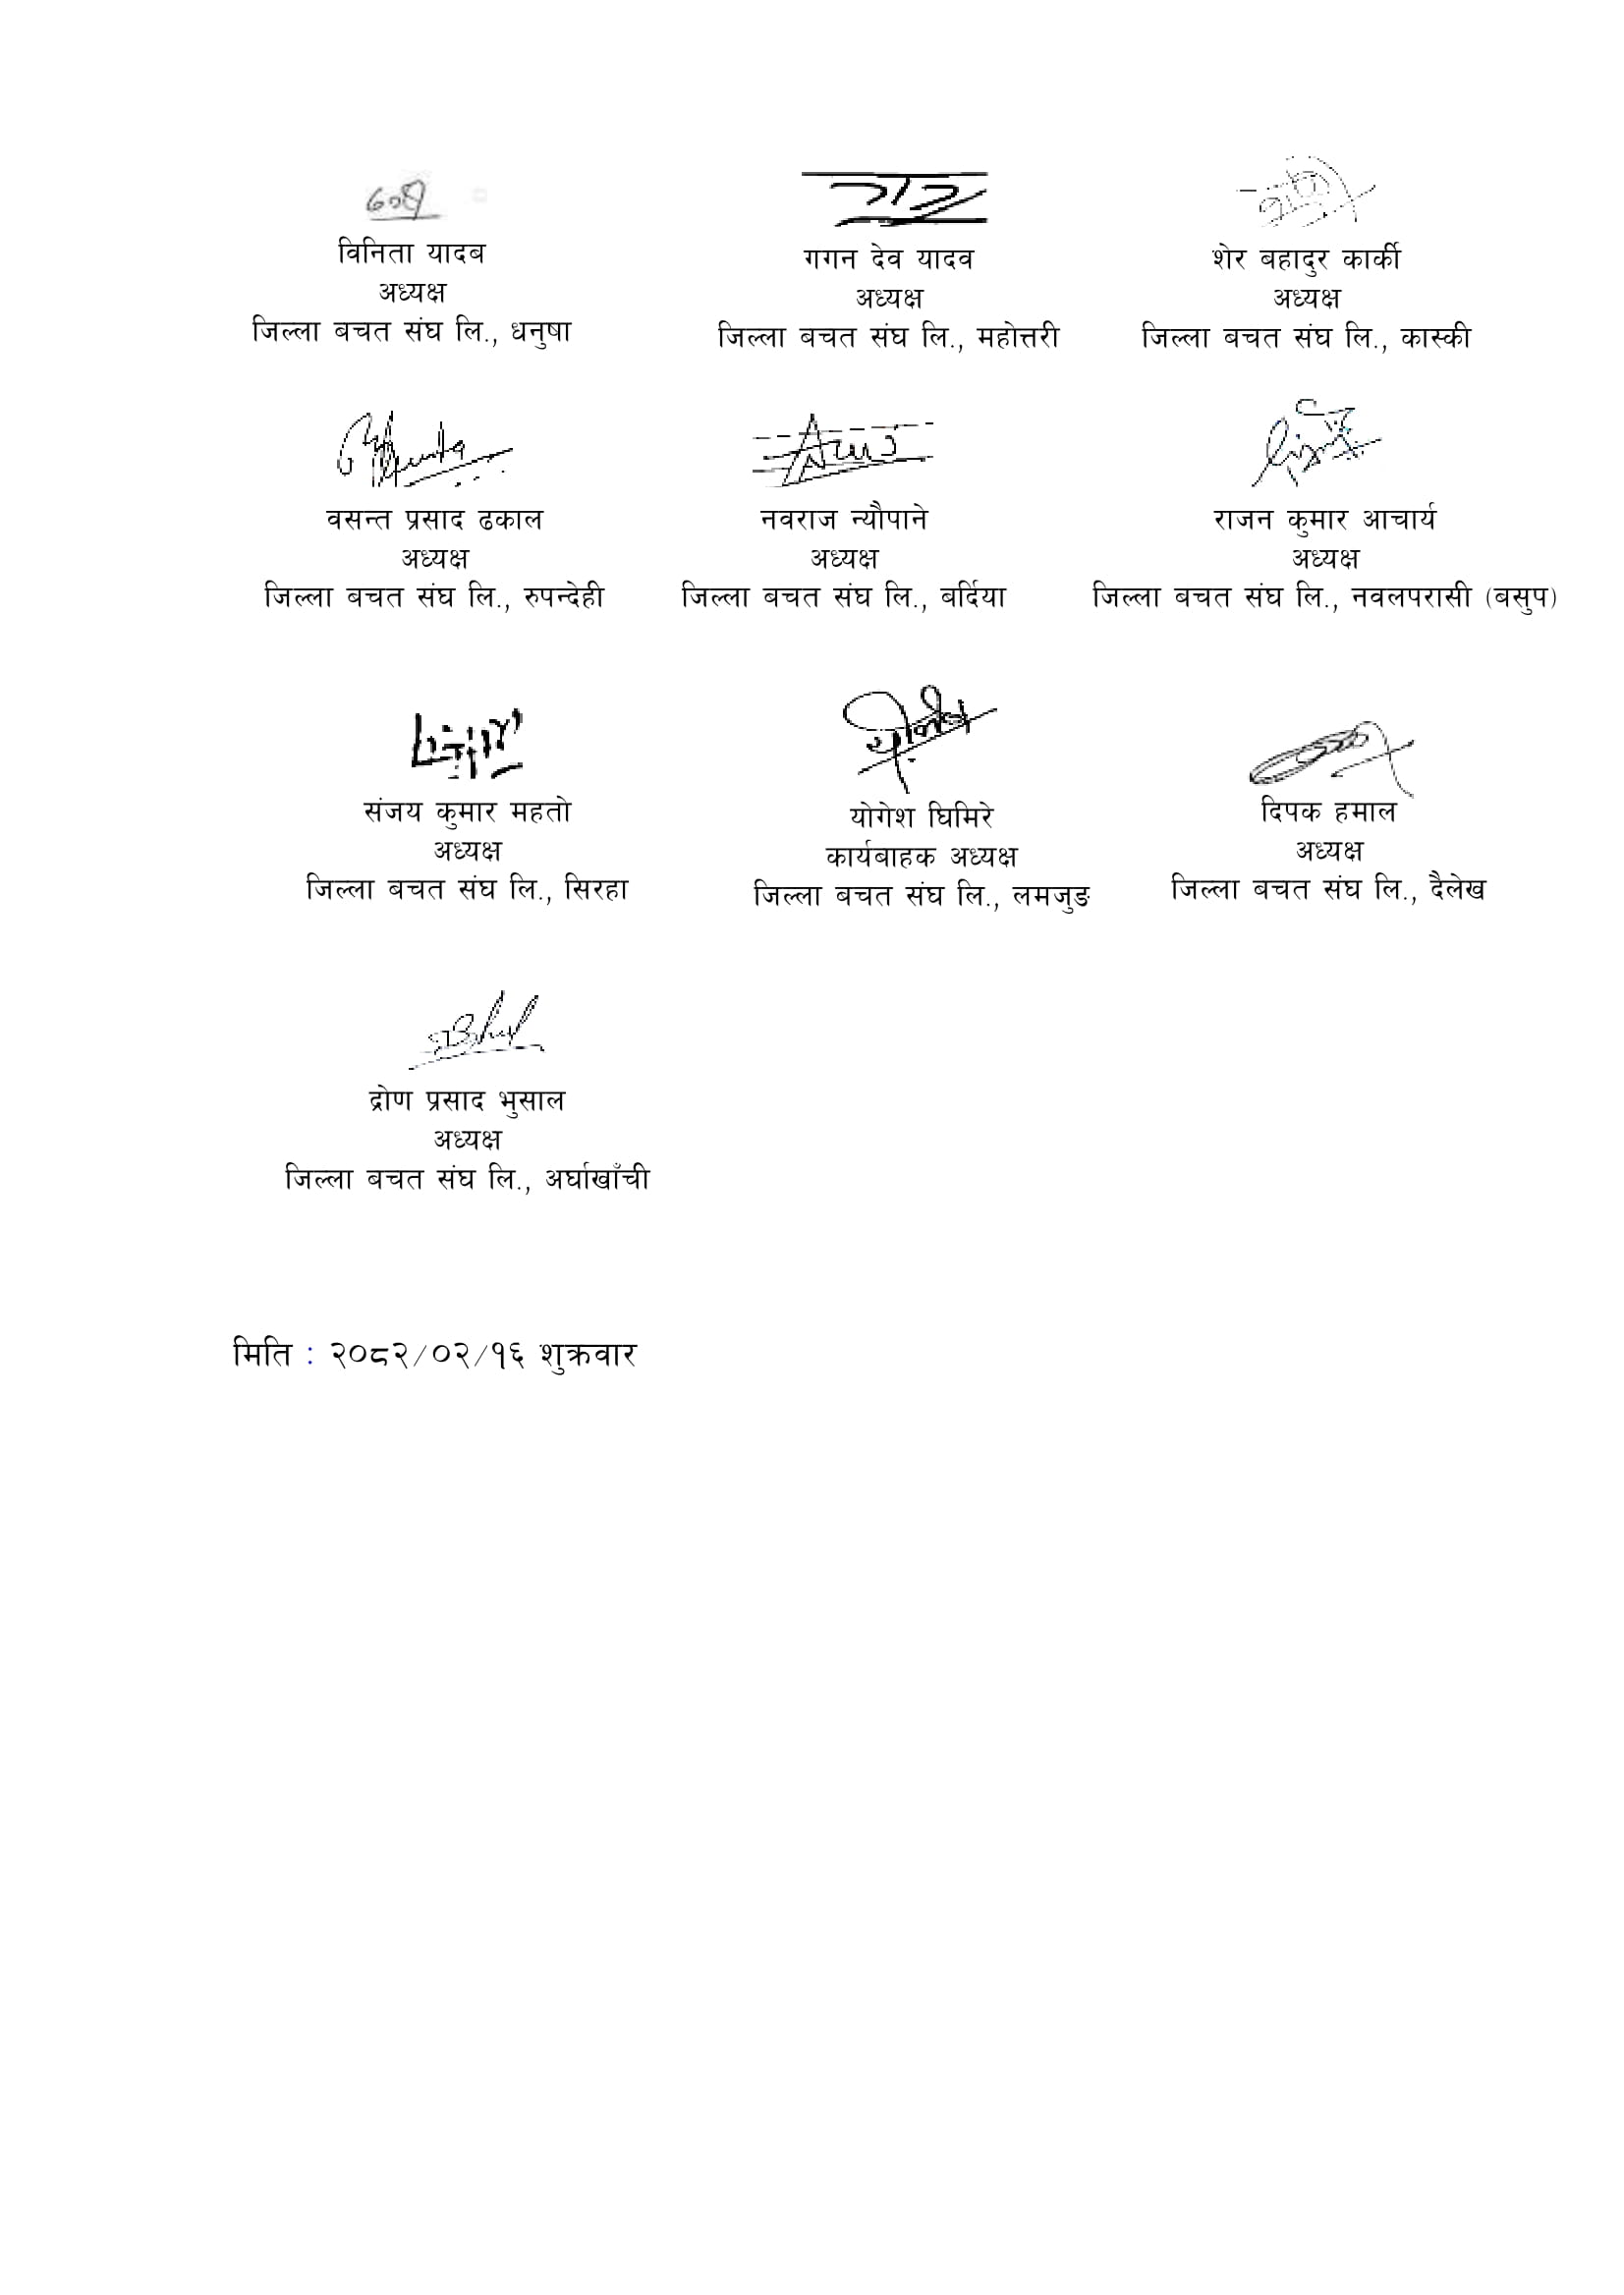 विनिता यादब
अध्यक्ष
जिल्ला बचत संघ लि., धनुषा
गगन देव यादव
अध्यक्ष
जिल्ला बचत संघ लि., महोत्तरी
शेर बहादुर कार्की
अध्यक्ष
जिल्ला बचत संघ लि., कास्की
वसन्त प्रसाद ढकाल
अध्यक्ष
जिल्ला बचत संघ लि., रुपन्देही
नवराज न्यौपाने
अध्यक्ष
जिल्ला बचत संघ लि., बर्दिया
राजन कुमार आचार्य
अध्यक्ष
जिल्ला बचत संघ लि., नवलपरासी (बसुप)
संजय कुमार महतो
अध्यक्ष
जिल्ला बचत संघ लि., सिरहा
योगेश घिमिरे
कार्यबाहक अध्यक्ष
जिल्ला बचत संघ लि., लमजुङ
दिपक हमाल
अध्यक्ष
जिल्ला बचत संघ लि., दैलेख
द्रोण प्रसाद भुसाल
अध्यक्ष
जिल्ला बचत संघ लि., अर्घाखाँची
मिति : २०८२/०२/१६ शुक्रवार